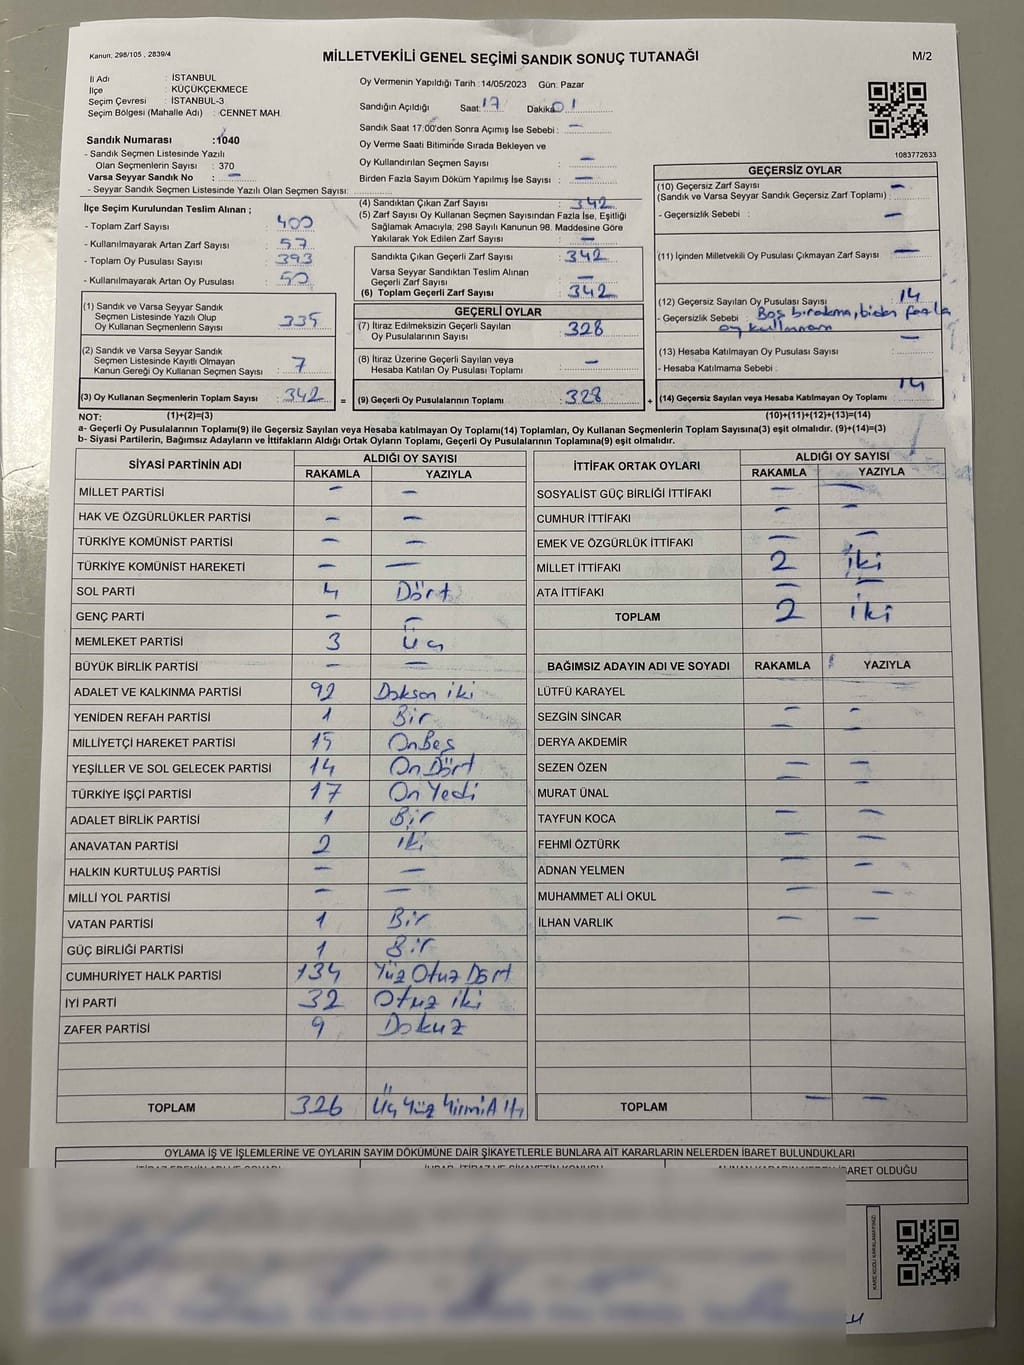 Kanun; 298/105 , 2839/4
MİLLETVEKİLİ GENEL SEÇİMİ SANDIK SONUÇ TUTANAĞI
M/2
İl Adı : İSTANBUL
İlçe : KÜÇÜKÇEKMECE
Seçim Çevresi : İSTANBUL-3
Seçim Bölgesi (Mahalle Adı) : CENNET MAH
Sandık Numarası :1040
- Sandık Seçmen Listesinde Yazılı
Olan Seçmenlerin Sayısı : 370
Varsa Seyyar Sandık No : –
- Seyyar Sandık Seçmen Listesinde Yazılı Olan Seçmen Sayısı:
Oy Vermenin Yapıldığı Tarih :14/05/2023 Gün: Pazar
Sandığın Açıldığı Saat: 17 Dakika: 01
Sandık Saat 17:00'den Sonra Açımış İse Sebebi : –
Oy Verme Saati Bitiminde Sırada Bekleyen ve
Oy Kullandırılan Seçmen Sayısı : –
Birden Fazla Sayım Döküm Yapılmış İse Sayısı : –
1083772633
İlçe Seçim Kurulundan Teslim Alınan ;
- Toplam Zarf Sayısı : 400
- Kullanılmayarak Artan Zarf Sayısı : 57
- Toplam Oy Pusulası Sayısı : 393
- Kullanılmayarak Artan Oy Pusulası : 50
(1) Sandık ve Varsa Seyyar Sandık
Seçmen Listesinde Yazılı Olup
Oy Kullanan Seçmenlerin Sayısı : 335
(2) Sandık ve Varsa Seyyar Sandık
Seçmen Listesinde Kayıtlı Olmayan
Kanun Gereği Oy Kullanan Seçmen Sayısı : 7
(3) Oy Kullanan Seçmenlerin Toplam Sayısı : 342 =
(4) Sandıktan Çıkan Zarf Sayısı : 342
(5) Zarf Sayısı Oy Kullanan Seçmen Sayısından Fazla İse, Eşitliği
Sağlamak Amacıyla; 298 Sayılı Kanunun 98. Maddesine Göre
Yakılarak Yok Edilen Zarf Sayısı : –
Sandıkta Çıkan Geçerli Zarf Sayısı : 342
Varsa Seyyar Sandıktan Teslim Alınan
Geçerli Zarf Sayısı : –
(6) Toplam Geçerli Zarf Sayısı : 342
GEÇERLİ OYLAR
(7) İtiraz Edilmeksizin Geçerli Sayılan
Oy Pusulalarının Sayısı : 328
(8) İtiraz Üzerine Geçerli Sayılan veya
Hesaba Katılan Oy Pusulası Toplamı : –
(9) Geçerli Oy Pusulalarının Toplamı : 328 +
GEÇERSİZ OYLAR
(10) Geçersiz Zarf Sayısı –
(Sandık ve Varsa Seyyar Sandık Geçersiz Zarf Toplamı) :
- Geçersizlik Sebebi : –
(11) İçinden Milletvekili Oy Pusulası Çıkmayan Zarf Sayısı : –
(12) Geçersiz Sayılan Oy Pusulası Sayısı : 14
- Geçersizlik Sebebi : Boş bırakma, birden fazla
oy kullanma
(13) Hesaba Katılmayan Oy Pusulası Sayısı : –
- Hesaba Katılmama Sebebi :
(14) Geçersiz Sayılan veya Hesaba Katılmayan Oy Toplamı : 14
NOT: (1)+(2)=(3) (10)+(11)+(12)+(13)=(14)
a- Geçerli Oy Pusulalarının Toplamı(9) ile Geçersiz Sayılan veya Hesaba Katılmayan Oy Toplamı(14) Toplamları, Oy Kullanan Seçmenlerin Toplam Sayısına(3) eşit olmalıdır. (9)+(14)=(3)
b- Siyasi Partilerin, Bağımsız Adayların ve İttifakların Aldığı Ortak Oyların Toplamı, Geçerli Oy Pusulalarının Toplamına(9) eşit olmalıdır.
SİYASİ PARTİNİN ADI ALDIĞI OY SAYISI
RAKAMLA YAZIYLA
MİLLET PARTİSİ – –
HAK VE ÖZGÜRLÜKLER PARTİSİ – –
TÜRKİYE KOMÜNİST PARTİSİ – –
TÜRKİYE KOMÜNİST HAREKETİ – –
SOL PARTİ 4 Dört
GENÇ PARTİ – –
MEMLEKET PARTİSİ 3 Üç
BÜYÜK BİRLİK PARTİSİ – –
ADALET VE KALKINMA PARTİSİ 92 Doksan iki
YENİDEN REFAH PARTİSİ 1 Bir
MİLLİYETÇİ HAREKET PARTİSİ 15 OnBeş
YEŞİLLER VE SOL GELECEK PARTİSİ 14 OnDört
TÜRKİYE İŞÇİ PARTİSİ 17 OnYedi
ADALET BİRLİK PARTİSİ 1 Bir
ANAVATAN PARTİSİ 2 iki
HALKIN KURTULUŞ PARTİSİ – –
MİLLİ YOL PARTİSİ – –
VATAN PARTİSİ 1 Bir
GÜÇ BİRLİĞİ PARTİSİ 1 Bir
CUMHURİYET HALK PARTİSİ 134 Yüz Otuz Dört
İYİ PARTİ 32 Otuz iki
ZAFER PARTİSİ 9 Dokuz
TOPLAM 326 Üç Yüz Yirmi Altı
İTTİFAK ORTAK OYLARI ALDIĞI OY SAYISI
RAKAMLA YAZIYLA
SOSYALİST GÜÇ BİRLİĞİ İTTİFAKI – –
CUMHUR İTTİFAKI – –
EMEK VE ÖZGÜRLÜK İTTİFAKI – –
MİLLET İTTİFAKI 2 iki
ATA İTTİFAKI – –
TOPLAM 2 iki
BAĞIMSIZ ADAYIN ADI VE SOYADI RAKAMLA YAZIYLA
LÜTFÜ KARAYEL
SEZGİN SİNCAR – –
DERYA AKDEMİR
SEZEN ÖZEN – –
MURAT ÜNAL –
TAYFUN KOCA – –
FEHMİ ÖZTÜRK – –
ADNAN YELMEN – –
MUHAMMET ALİ OKUL – –
İLHAN VARLIK – –
TOPLAM – –
OYLAMA İŞ VE İŞLEMLERİNE VE OYLARIN SAYIM DÖKÜMÜNE DAİR ŞİKAYETLERLE BUNLARA AİT KARARLARIN NELERDEN İBARET BULUNDUKLARI
İBARET OLDUĞU
KARE KODU KARALAMAYINIZ!